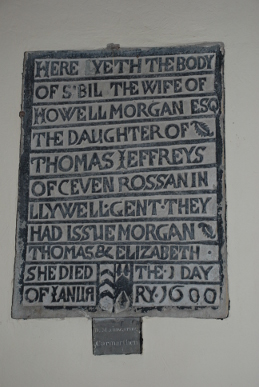 HERE LYETH THE BODY
OF SIBIL THE WIFE OF
HOWELL MORGAN ESQ
THE DAUGHTER OF
THOMAS JEFFREYS
OF CEVEN ROSSAN IN
LLYWELL·GENT·THEY
HAD ISSUE MORGAN
THOMAS & ELIZABETH ·
SHE DIED THE · 1 DAY
OF JANUARY · 1600